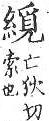 亡狄切
索也